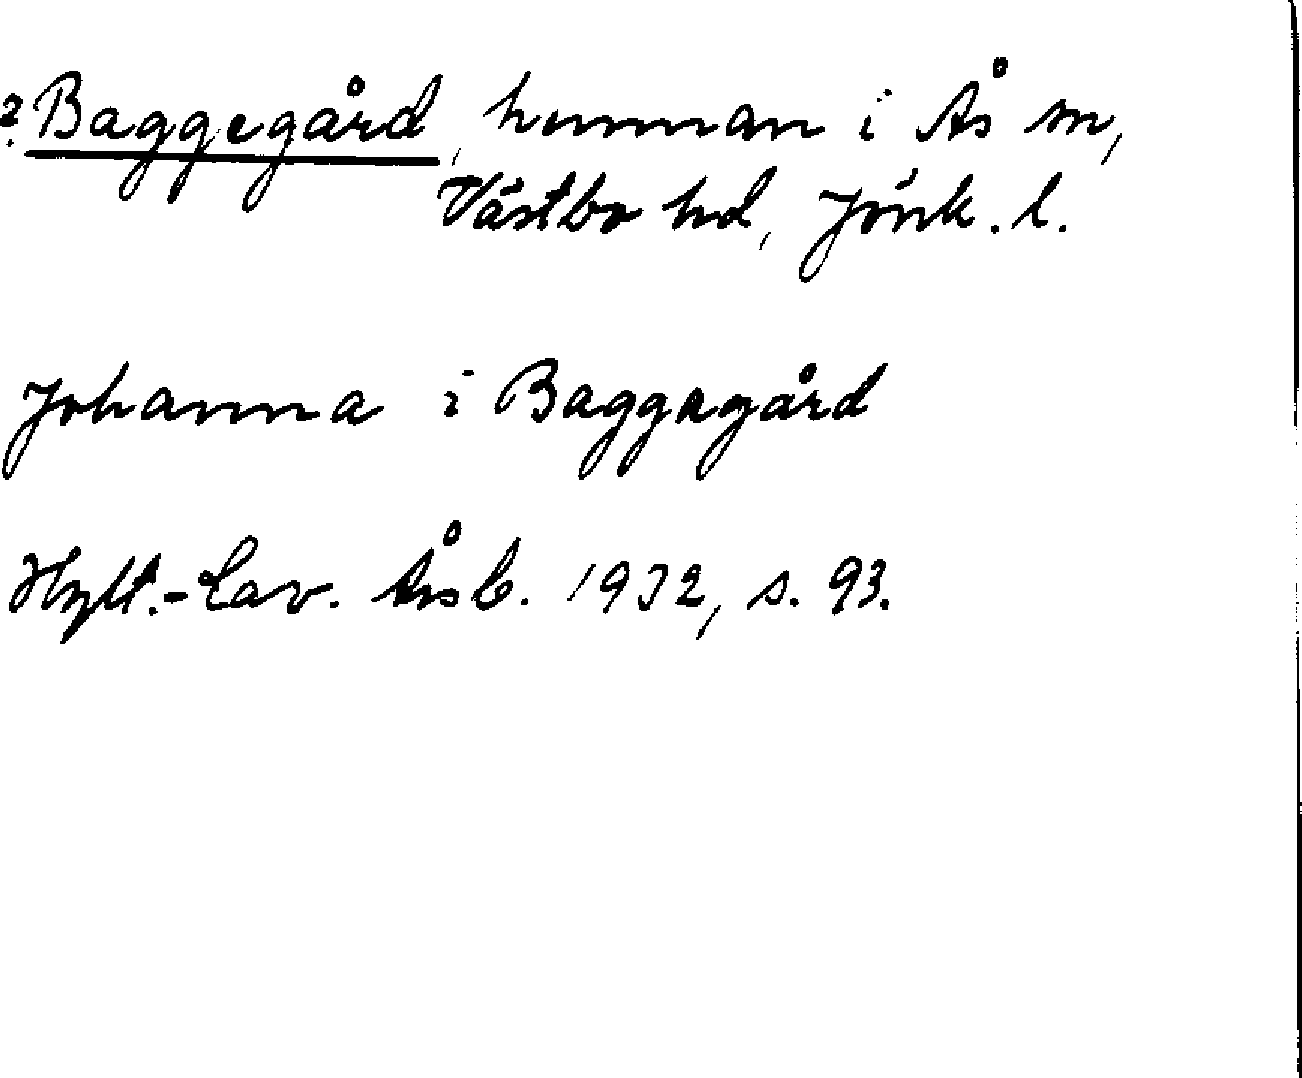 ? Baggegård, hemman i Ås sn,
Västbo hd, Jönk. l.
Johanna i Baggagård
Hylt.-Cav. Årsb. 1932, s. 93.